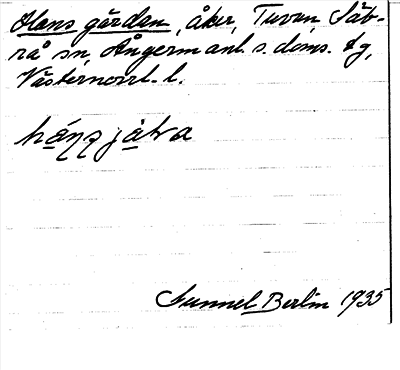 Hans gården, åker, Tuvan, Säb-
rå sn, Ångermanl. s. doms. dg,
Västernorrl. l.
Gunnel Berlin 1935